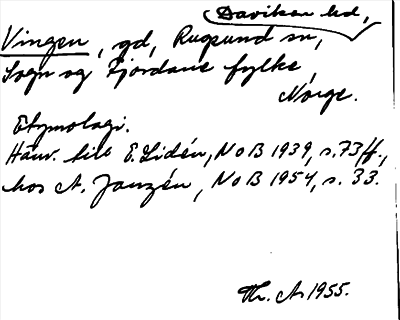 Daviken hd,
Vingen, gd, Rugsund sn,
Sogn og Fjordane fylke
Norge.
Etymologi.
Hänv. till E. Lidén, NoB 1939, s. 73 ff.,
hos A. Janzén, NoB 1954, s. 33.
Th. A. 1955.